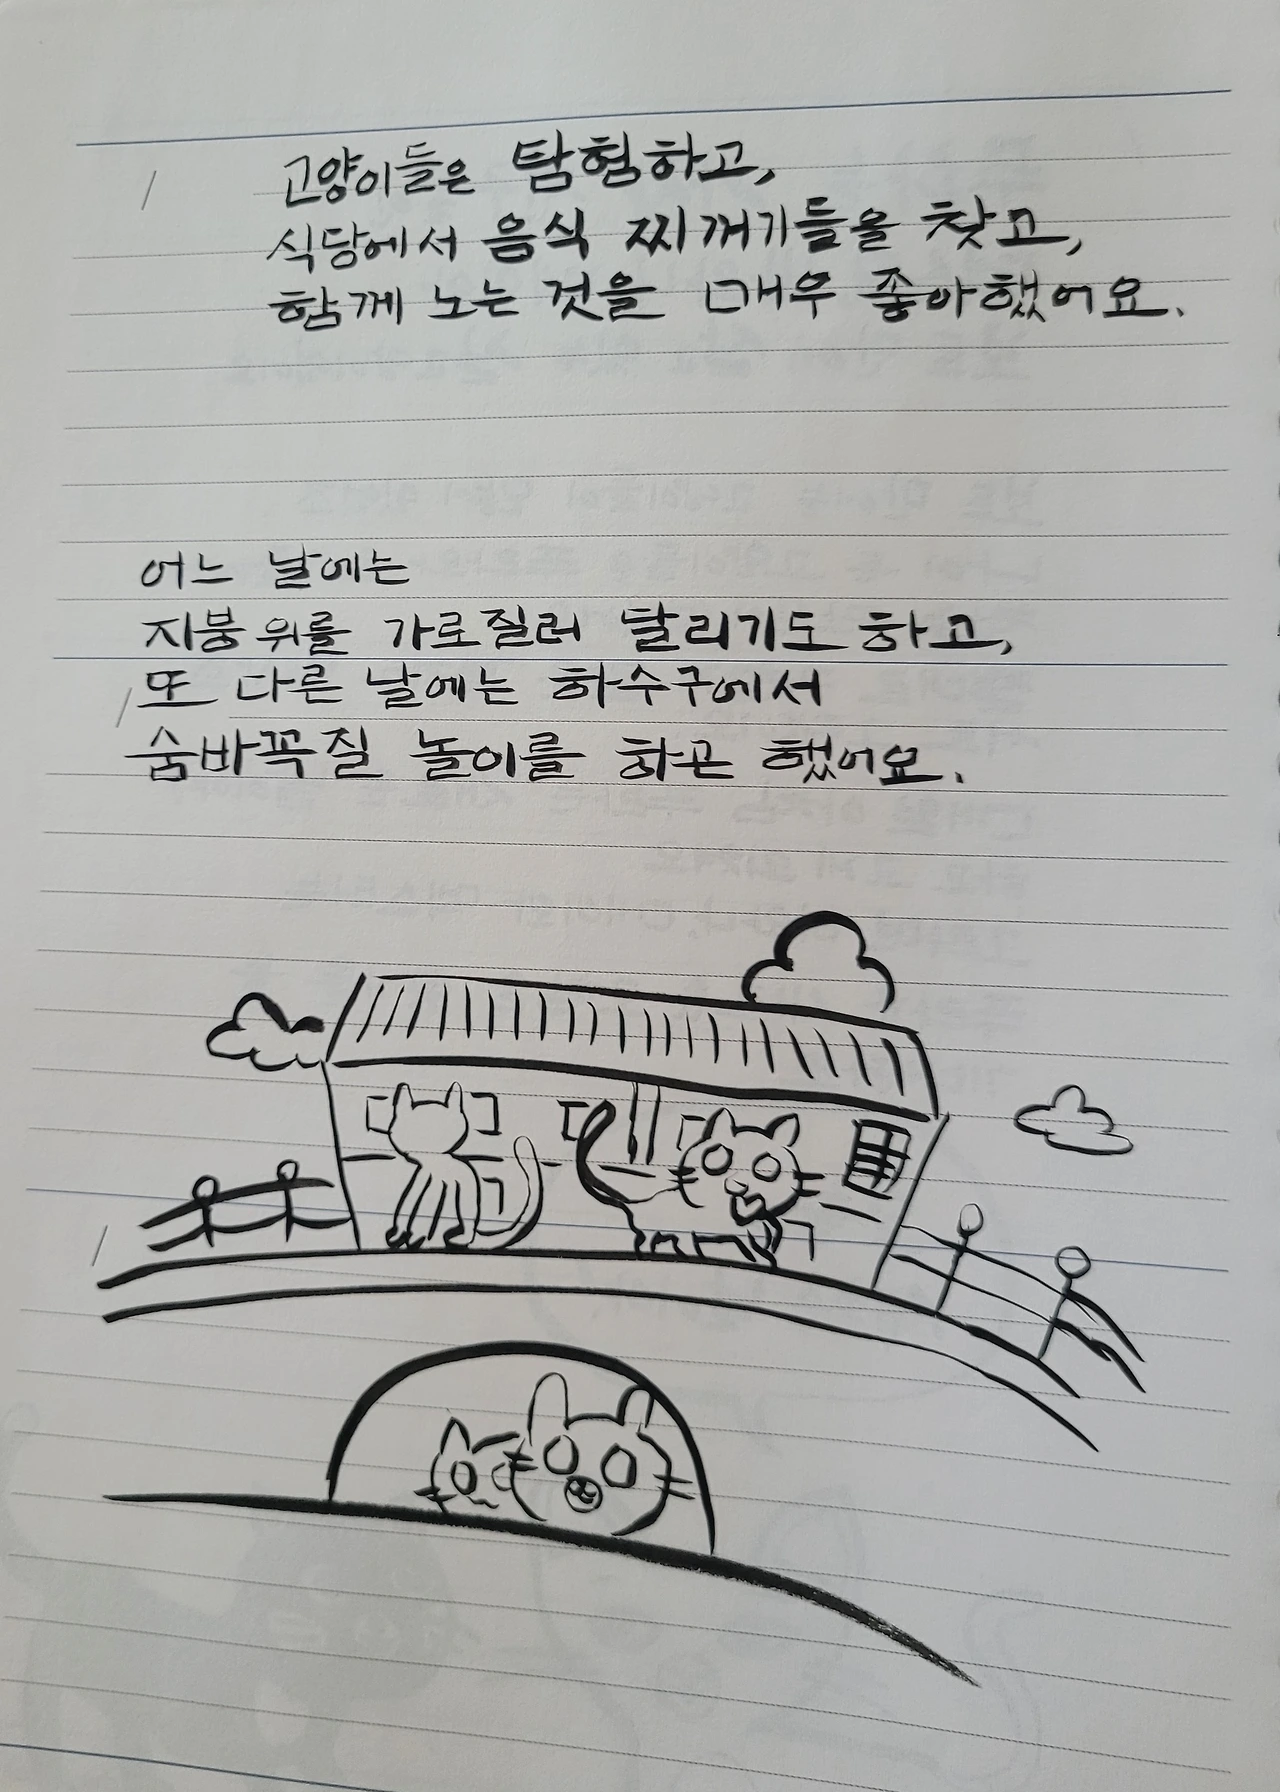 고양이들은 탐험하고,
식당에서 음식 찌꺼기들을 찾고,
함께 노는 것을 매우 좋아했어요.
어느 날에는
지붕 위를 가로질러 달리기도 하고,
또 다른 날에는 하수구에서
숨바꼭질 놀이를 하곤 했어요.